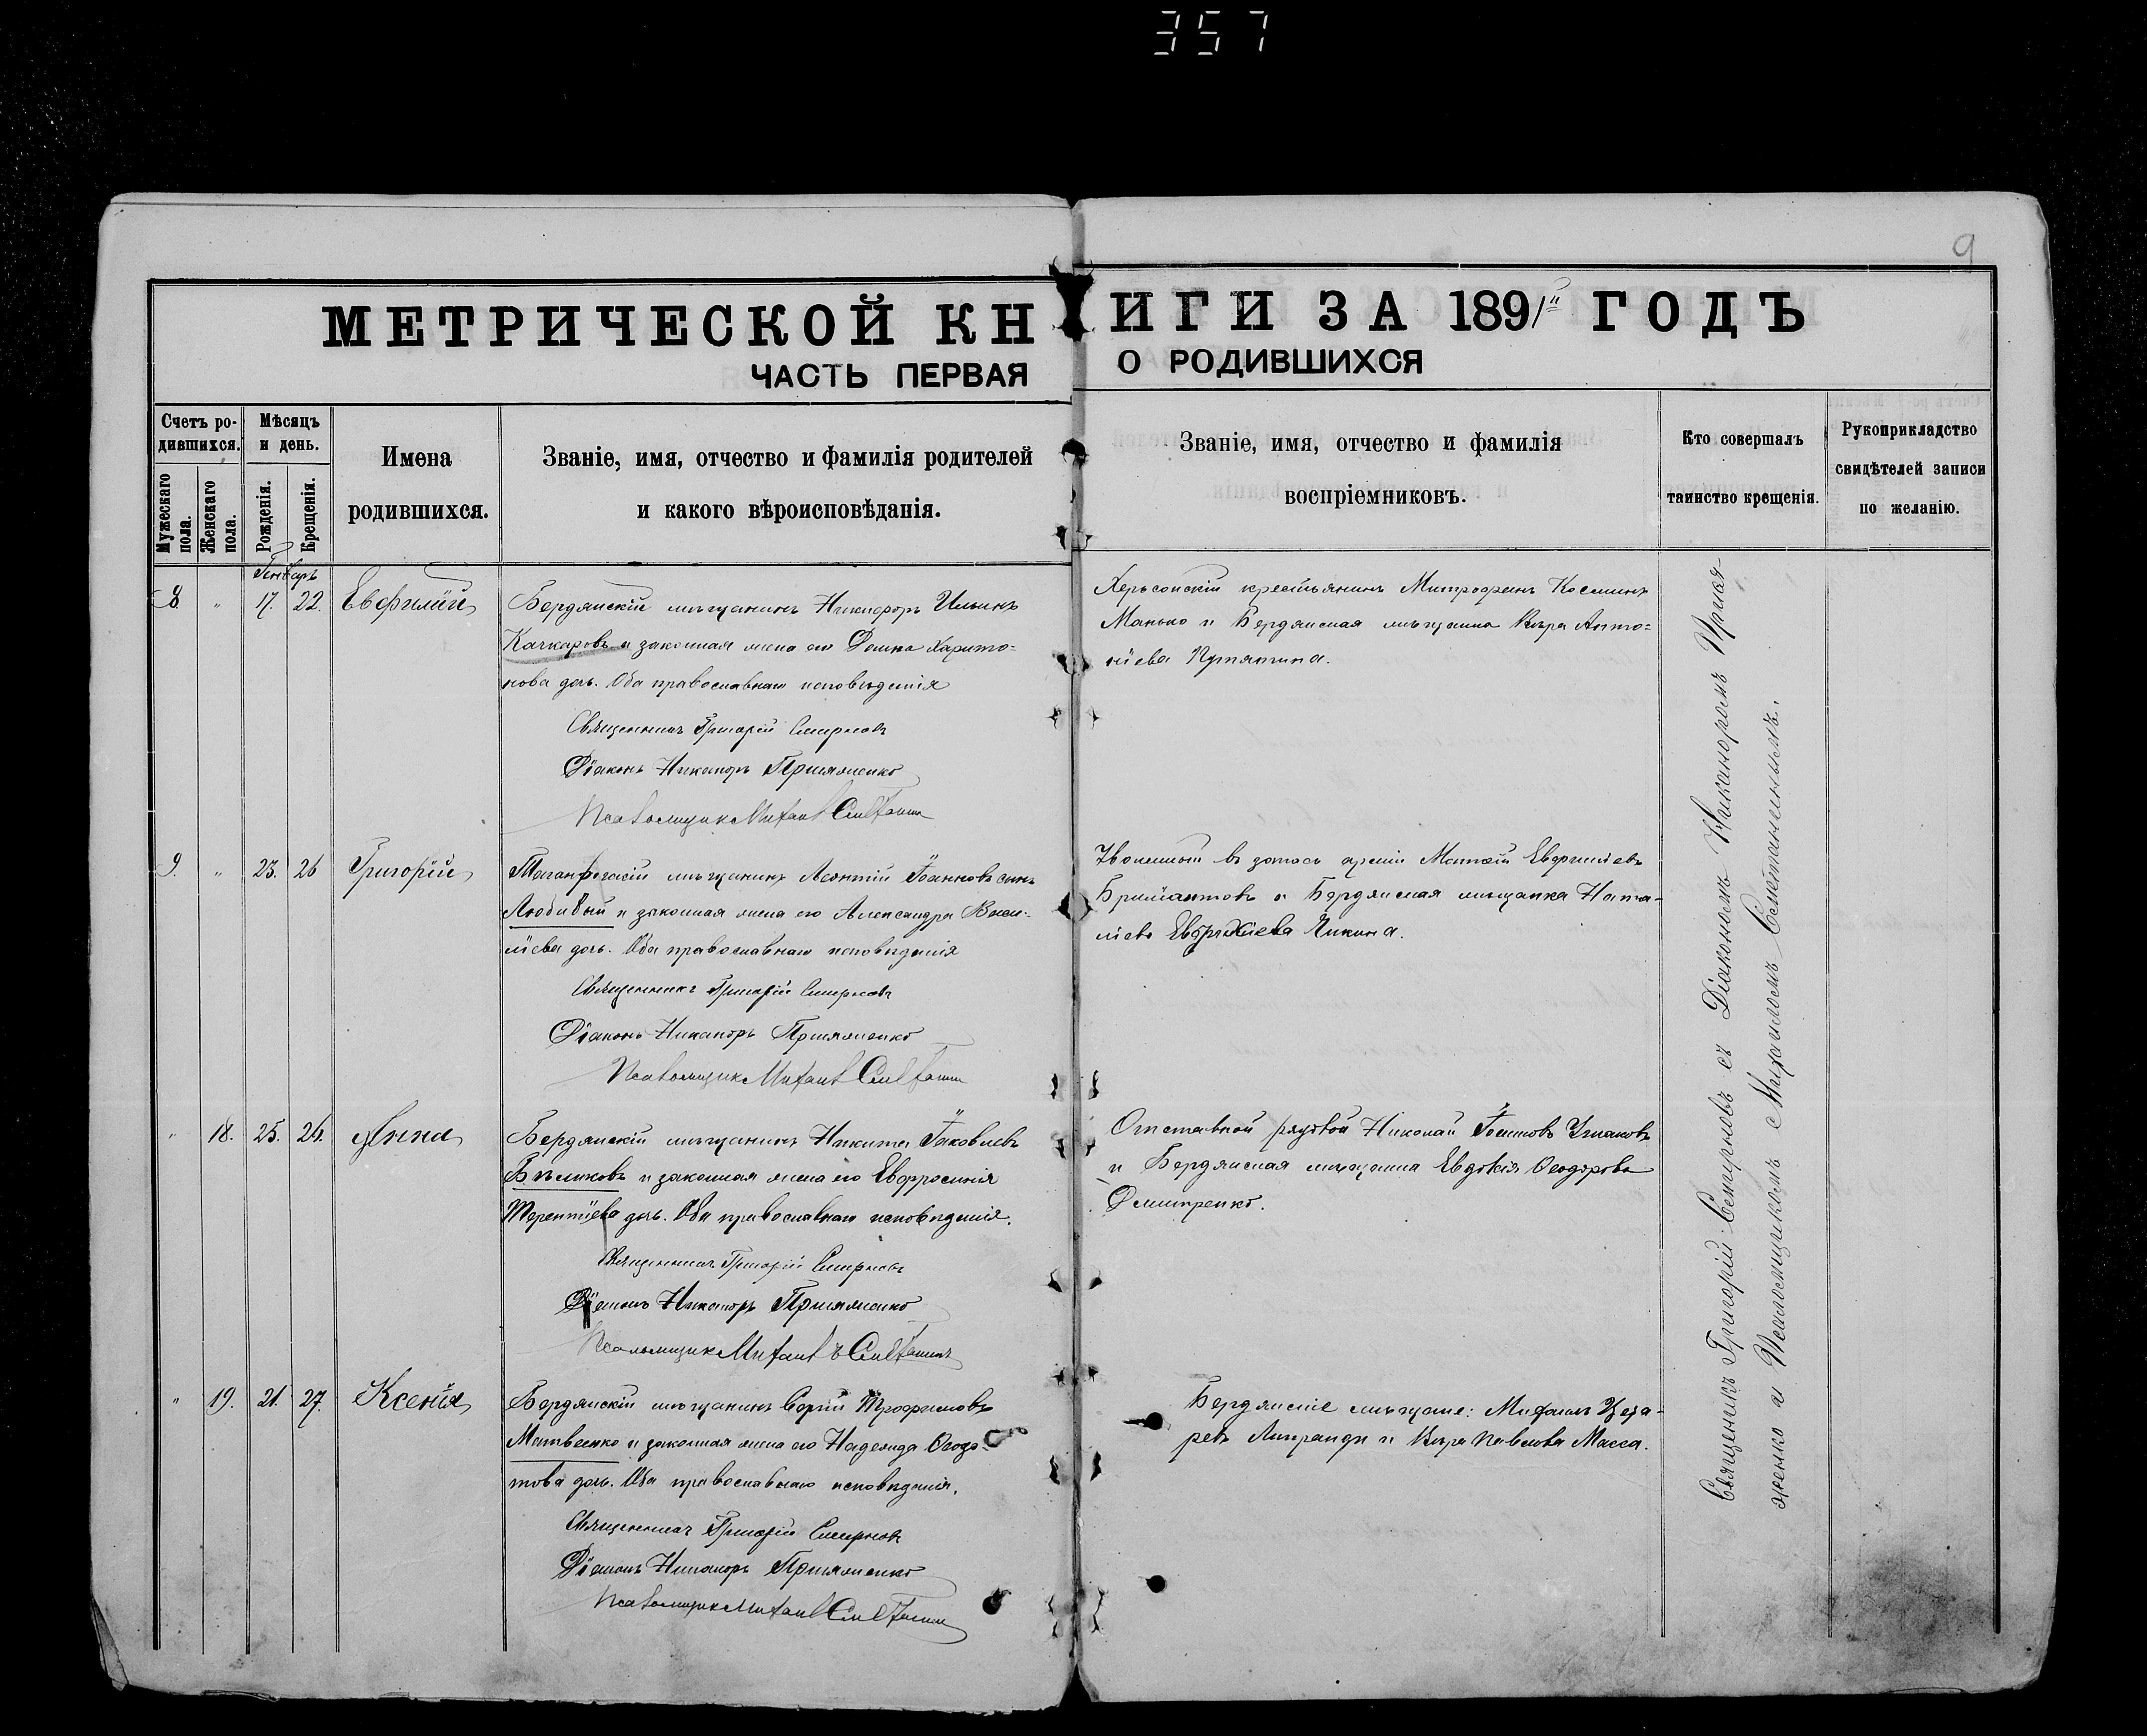 357
9
МЕТРИЧЕСКОЙ КНИГИ ЗА 1891й ГОДЪ
ЧАСТЬ ПЕРВАЯ О РОДИВШИХСЯ
Счетъ родившихся.
Мужескаго пола.
Женскаго пола.
Мѣсяцъ и день.
Рожденія.
Крещенія.
Имена
родившихся.
Званіе, имя, отчество и фамилія родителей
и какого вѣроисповѣданія.
Званіе, имя, отчество и фамилія
воспріемниковъ.
Кто совершалъ
таинство крещенія.
Рукоприкладство
свидѣтелей записи
по желанію.
Генварь
8. " 17. 22. Евфимій
Бердянскій мѣщанинъ Никифоръ Ильинъ
Качкаровъ и законная жена его Домна Харито-
нова дочь. Оба православнаго исповѣданія
Священникъ Григорій Смирновъ
Діаконъ Никаноръ Прияженко
Псаломщикъ Михаилъ
Херсонскій крестьянинъ Митрофанъ Косминъ
Манько и Бердянская мѣщанка Вѣра Анто-
ніева Путятина.
9. " 23. 26 Григорій
Таганрогскій мѣщанинъ Леонтій Іоанновъ сынъ
Любивый и законная жена его Александра Васи-
ліева дочь. Оба православнаго исповѣданія
Священникъ Григорій Смирновъ
Діаконъ Никаноръ Прияженко
Псаломщикъ Михаилъ
Уволенный въ запасъ арміи Матѳій
Бриліантовъ и Бердянская мѣщанка Ната-
лія
" 18. 25. 26. Анна
Бердянскій мѣщанинъ Никита Іаковлевъ
Бѣликовъ и законная жена его Евфросинія
Терентіева дочь. Оба православнаго исповѣданія.
Священникъ Григорій Смирновъ
Діаконъ Никаноръ Прияженко
Псаломщикъ Михаилъ
Отставной рядовой Николай Ушаковъ
и Бердянская мѣщанка Евдокія Ѳеодорова
Дмитренко.
" 19. 21. 27. Ксенія
Бердянскій мѣщанинъ Сергій Трофимовъ
Матвеенко и законная жена его Надежда Ѳеодо-
това дочь. Оба православнаго исповѣданія.
Священникъ Григорій Смирновъ
Діаконъ Никаноръ Прияженко
Псаломщикъ Михаилъ
Бердянскіе мѣщане: Михаилъ Цеза-
ревъ Липранди и Вѣра Павлова Масса.
Священникъ Григорій Смирновъ съ Діакономъ Никаноромъ Прияженко
и Псаломщикомъ Михаиломъ